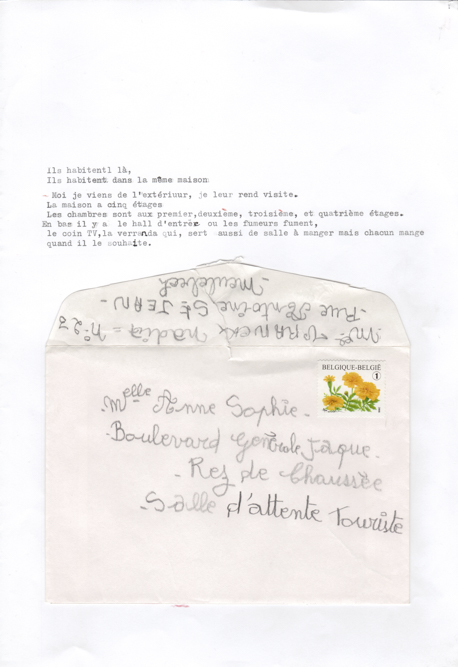 Ils habitentl là,
Ils habitent dans la même maison
- Moi je viens de l'extériuur, je leur rend visite.
La maison a cinq étages
Les chambres sont aux premier,deuxième, troisième, et quatrième étages.
En bas il y a le hall d'entrée ou les fumeurs fument,
le coin TV,la verranda qui, sert aussi de salle à manger mais chacun mange
quand il le souhaite.
Melle VRANCKX nadia = n°23
-Rue Antoine St JEAN-
BELGIQUE-BELGIË
1
Melle Anne Sophie.
-Boulevard Genérole Jaque.
-Rez de Chaussée
-Salle d'attente Touriste